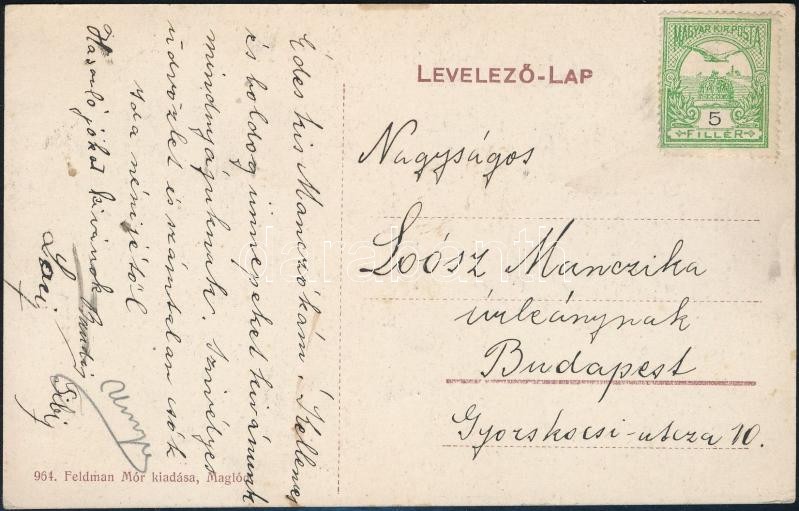 LEVELEZŐ-LAP
MAGYAR KIR. POSTA
5
FILLÉR
Nagyságos
Loósz Manczika
úrleánynak
Budapest
Gyorskocsi-utcza 10.
Édes kis Manczókám! Kellemes
és boldog ünnepeket kívánunk
mindnyájuknak. Szívélyes
üdvözlet és számtalan csók
Ida nénijétől
Hasonló jókat kívánok Bandi
Laci
964. Feldman Mór kiadása, Maglód
darabanth